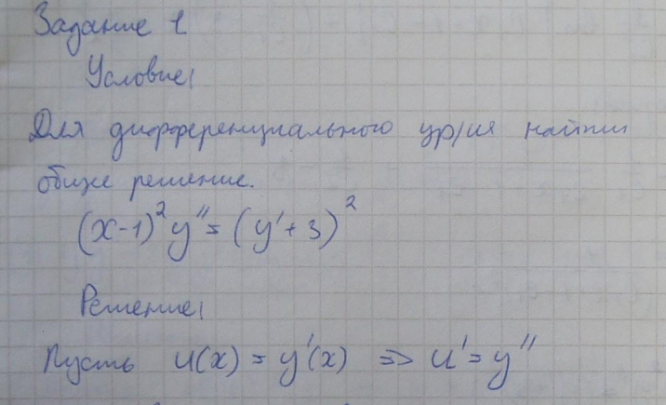 Задание 1
Условие:
Для дифференциального ур/ия найти
общее решение.
(x-1)²y''=(y'+3)²
Решение:
Пусть u(x) = y'(x) => u'=y''